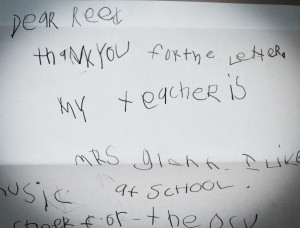 DEAR REEt
thANKYOU for the LetteR.
MY teacher is
MRS glann. I Like
music at SCHOOL.
for the